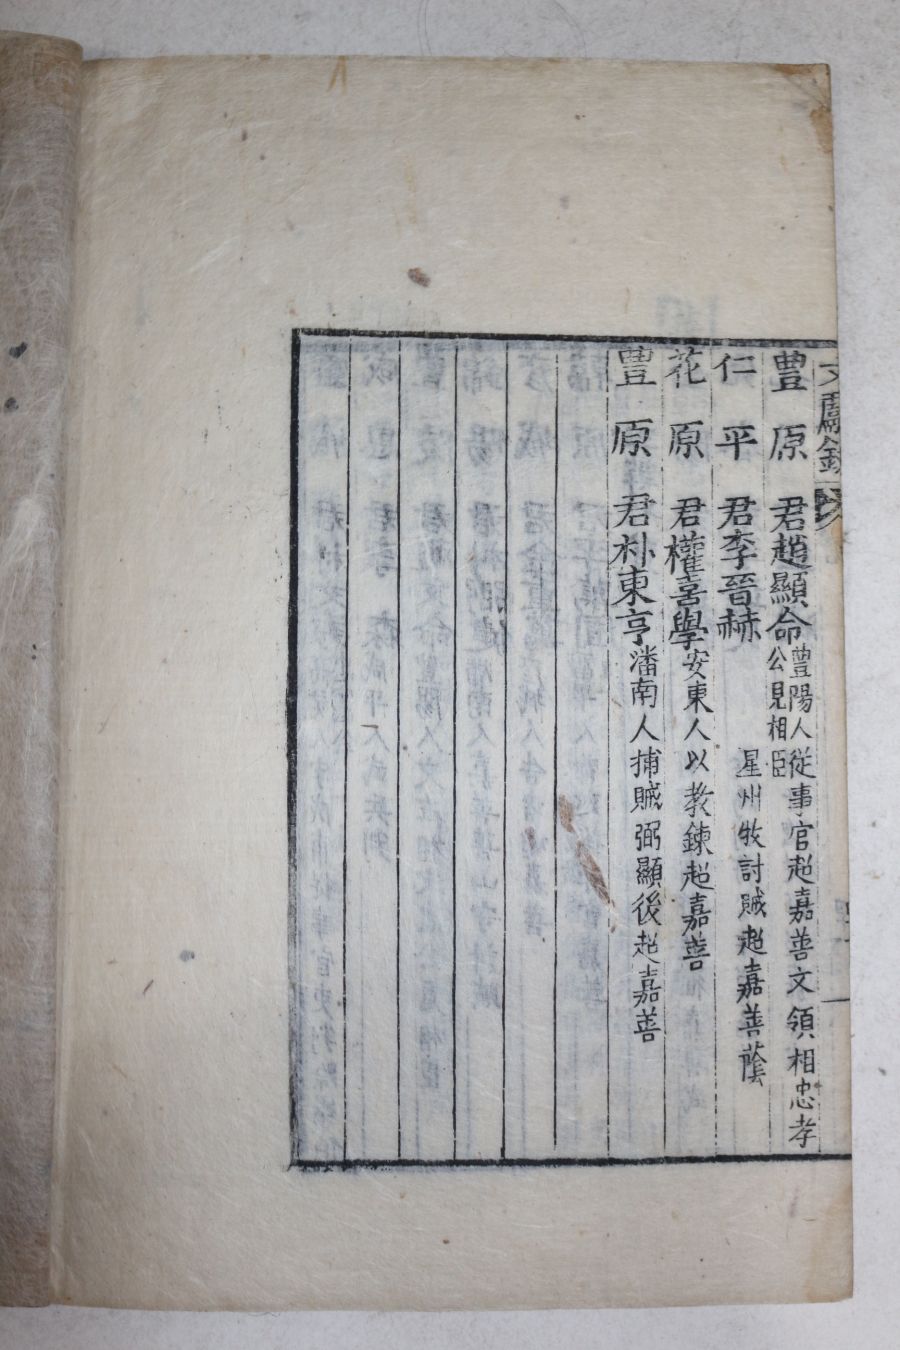 文獻錄
豊原君趙顯命豊陽人從事官超嘉善文領相忠孝
公見相臣
仁平君李晉赫星州牧討賊超嘉善蔭
花原君權喜學安東人以敎鍊超嘉善
豊原君朴東亨潘南人捕賊弼顯後超嘉善